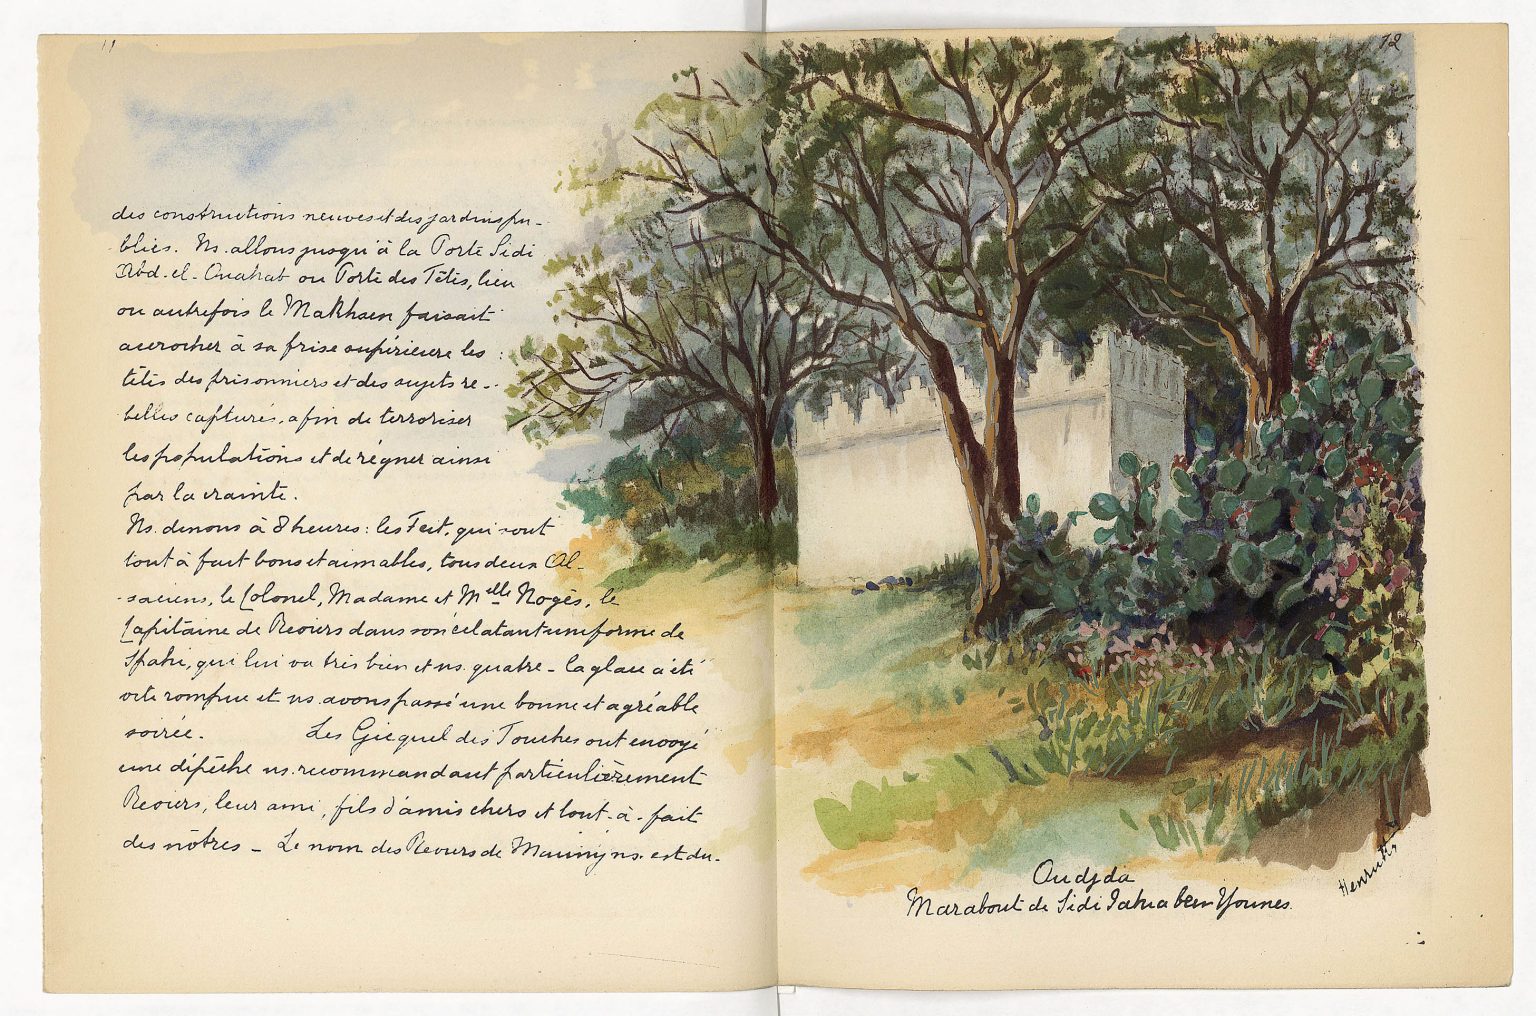 11
des constructions neuves et des jardins pu-
blics. Ns. allons jusqu'à la Porte Sidi
Abd-el-Ouahab ou Porte des Têtes, lieu
ou autrefois le Makhsen faisait
accrocher à sa frise supérieure les
têtes des prisonniers et des sujets re-
belles capturés, afin de terroriser
les populations et de régner ainsi
par la crainte.
Ns. dinons à 8 heures: les Feit, qui sont
tout à fait bons et aimables, tous deux Al-
saciens, le Colonel, Madame et Melle Nogès, le
Capitaine de Reviers dans son éclatant uniforme de
Spahi, qui lui va très bien et ns. quatre - la glace a été
vite rompue et ns. avons passé une bonne et agréable
soirée. Les Gicquel des Touches ont envoyé
une dépêche ns. recommandant particulièrement
Reviers, leur ami, fils d'amis chers et tout-à-fait
des nôtres - Le nom des Reviers de Mauny ns. est du-
12
Oudjda
Marabout de Sidi Jahia ben Younes.